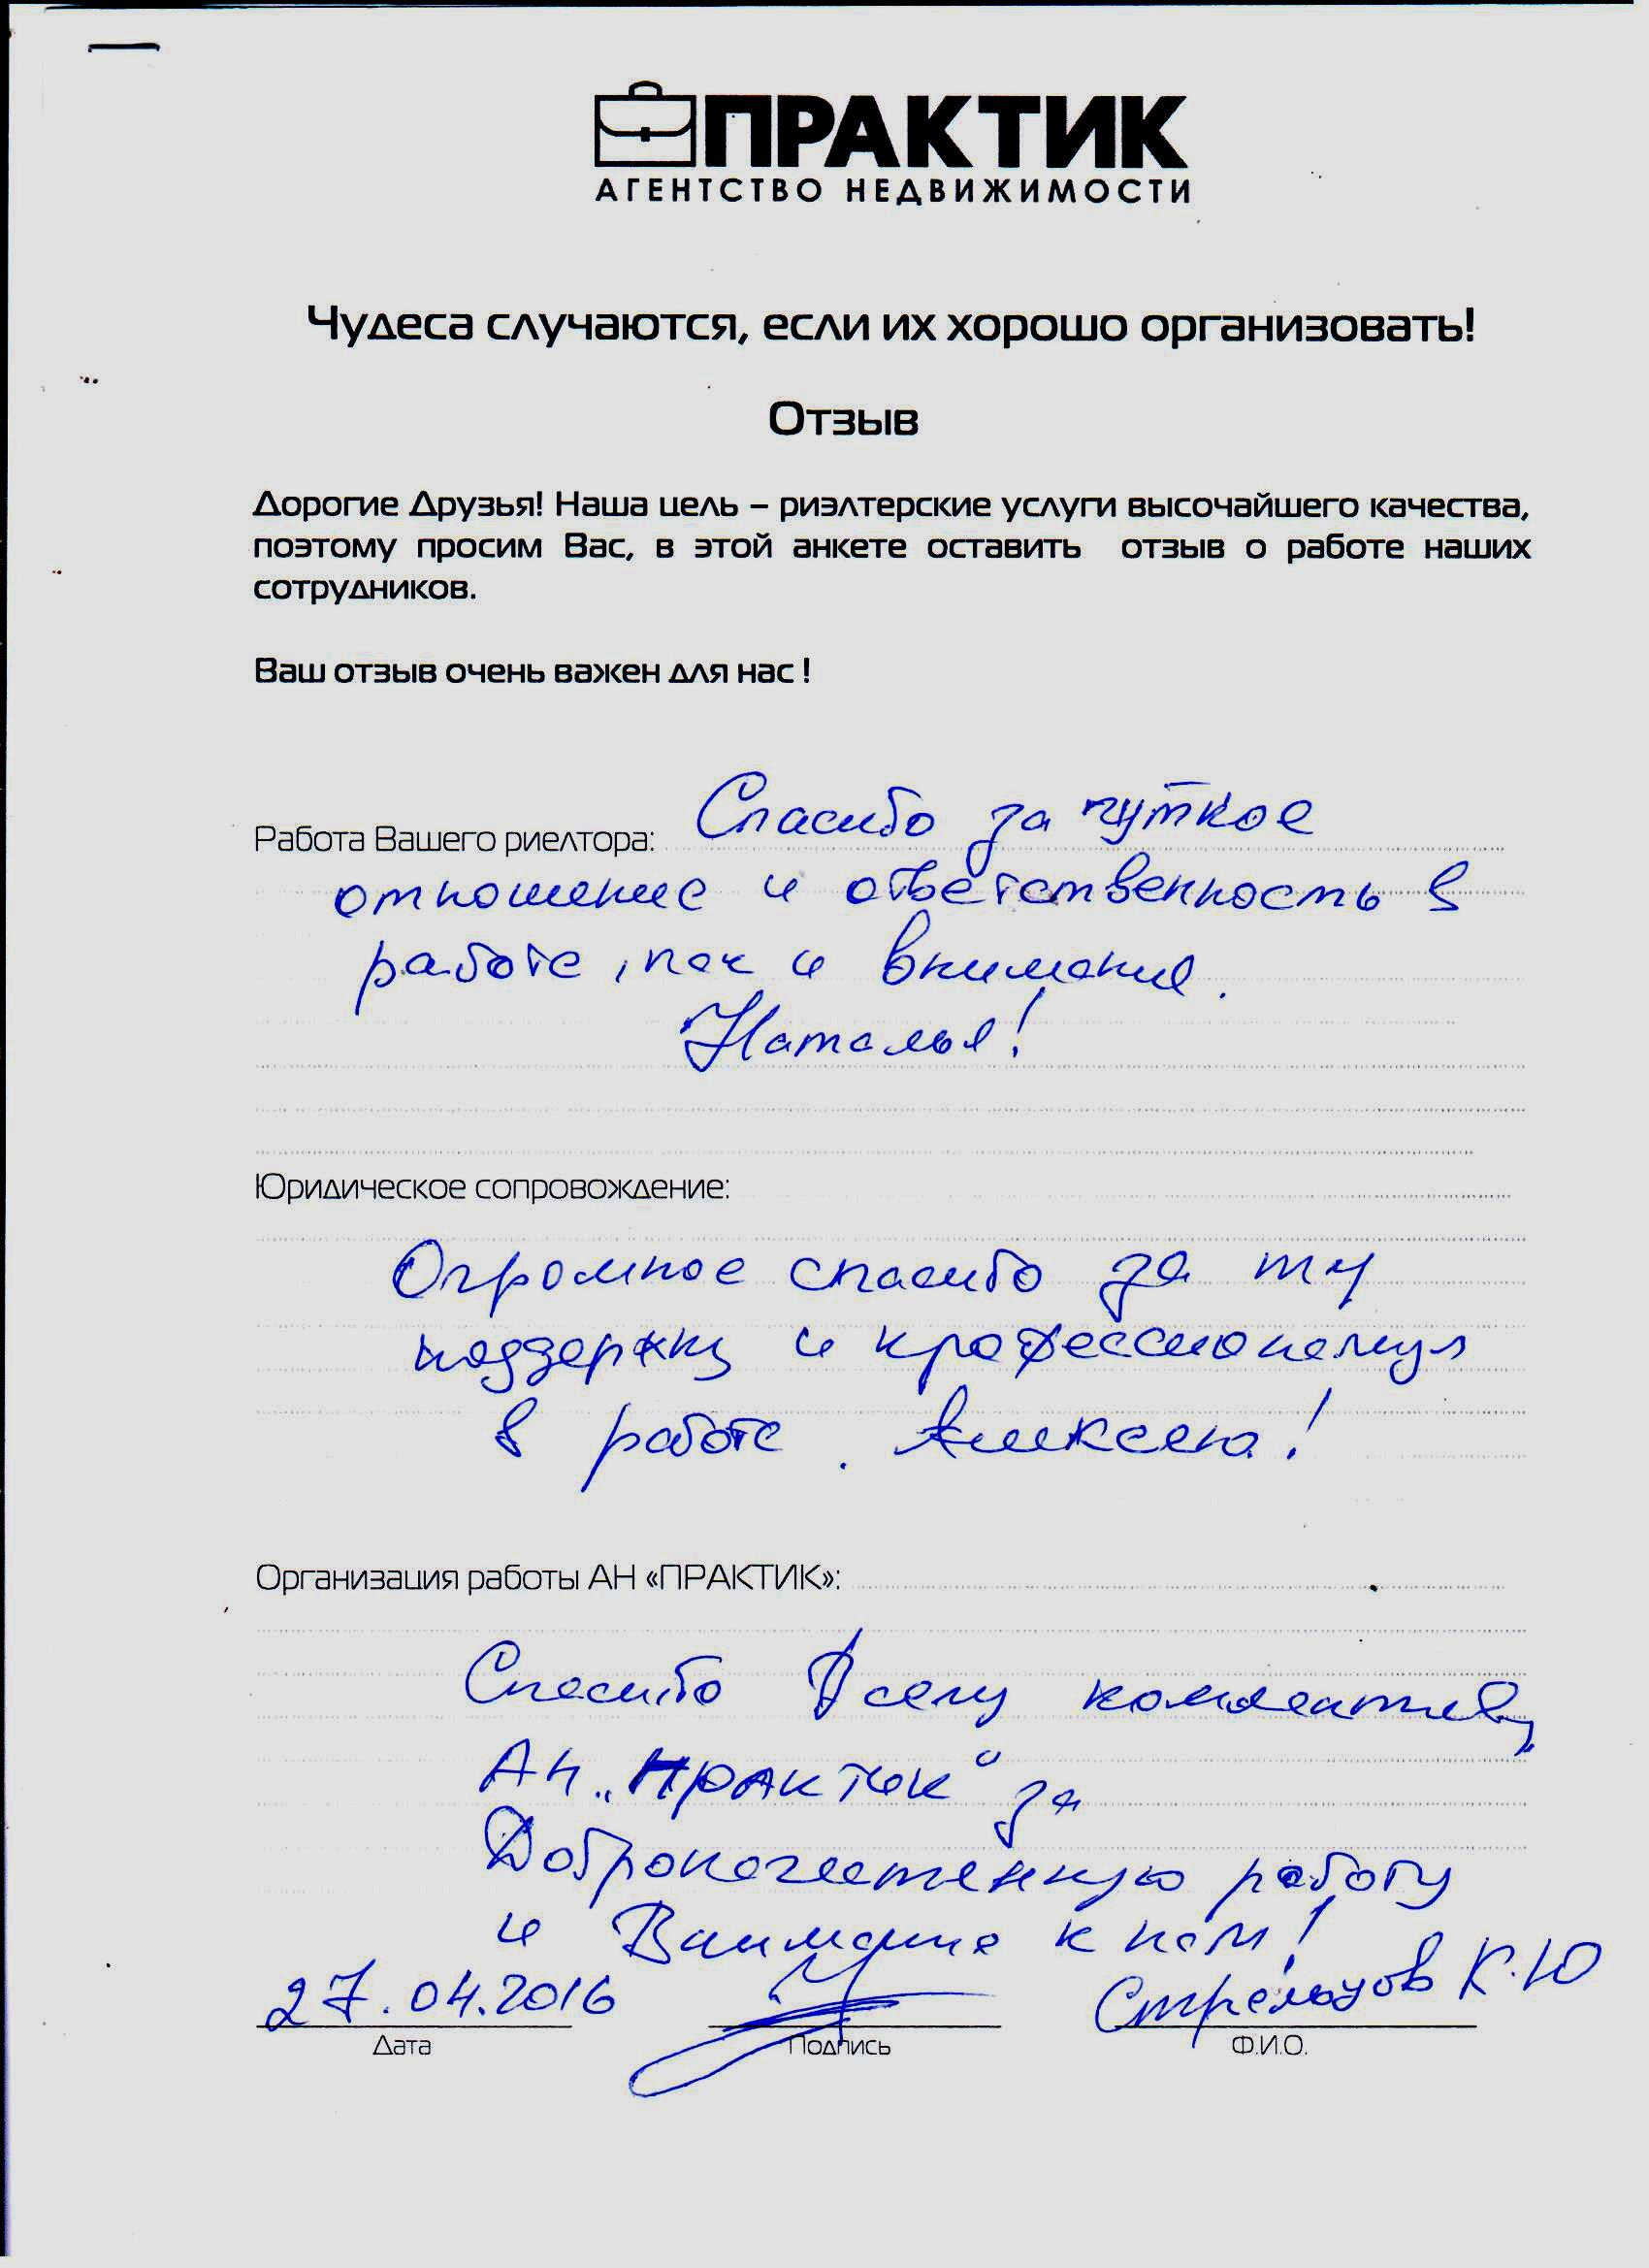 ПРАКТИК
АГЕНТСТВО НЕДВИЖИМОСТИ
Чудеса случаются, если их хорошо организовать!
Отзыв
Дорогие Друзья! Наша цель – риэлтерские услуги высочайшего качества,
поэтому просим Вас, в этой анкете оставить отзыв о работе наших
сотрудников.
Ваш отзыв очень важен для нас !
Работа Вашего риелтора: Спасибо за чуткое
отношение и ответственность в
работе, так и внимание.
Наталья!
Юридическое сопровождение:
Огромное спасибо за ту
поддержку и профессионализм
в работе. Алексею!
Организация работы АН «ПРАКТИК»:
Спасибо Всему коллективу
АН „Практик“ за
Доброкачественную работу
и Внимание к нам!
27.04.2016 Стрельцов К.Ю
Дата Подпись Ф.И.О.